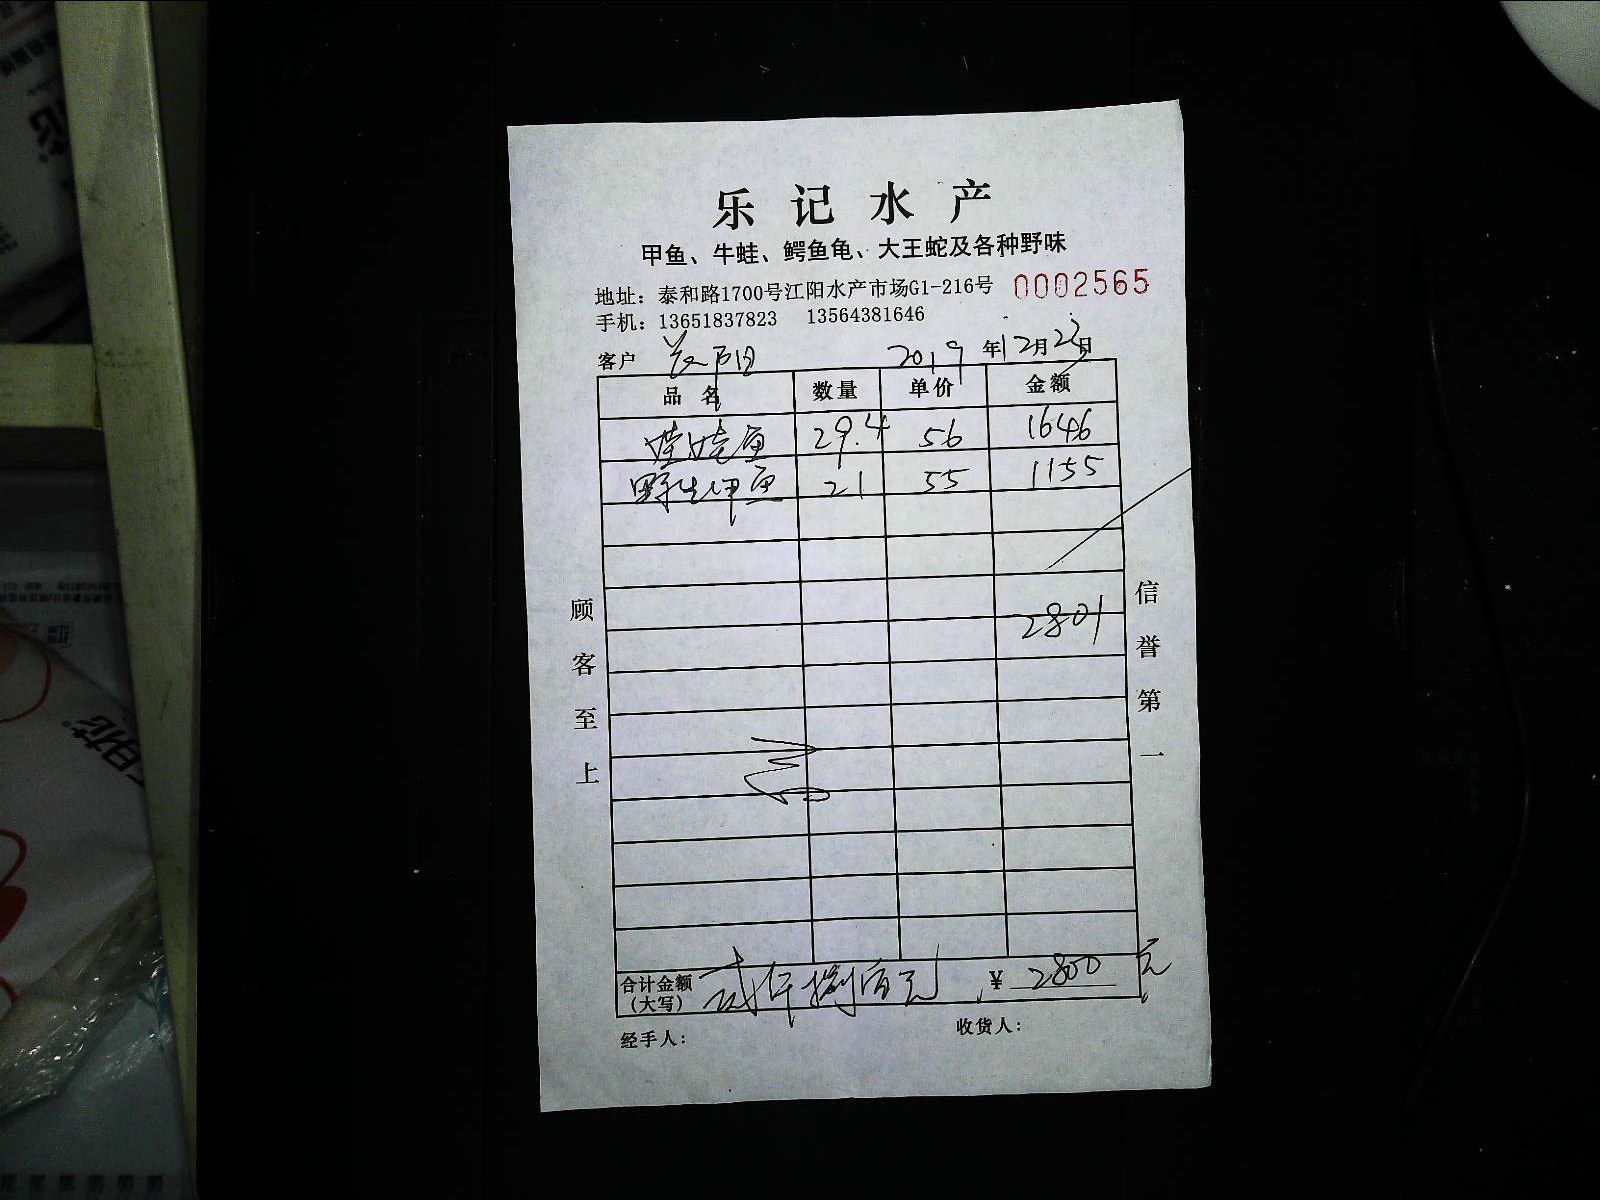 乐记水产
甲鱼、牛蛙、鳄鱼龟、大王蛇及各种野味
地址：泰和路1700号江阳水产市场G1-216号 0002565
手机：13651837823 13564381646
客户 2019年12月23日
品名 数量 单价 金额
娃娃鱼 29.4 56 1646
野生甲鱼 21 55 1155
2801
顾客至上
信誉第一
合计金额（大写） 贰仟捌佰元 ￥2800元
经手人： 收货人：